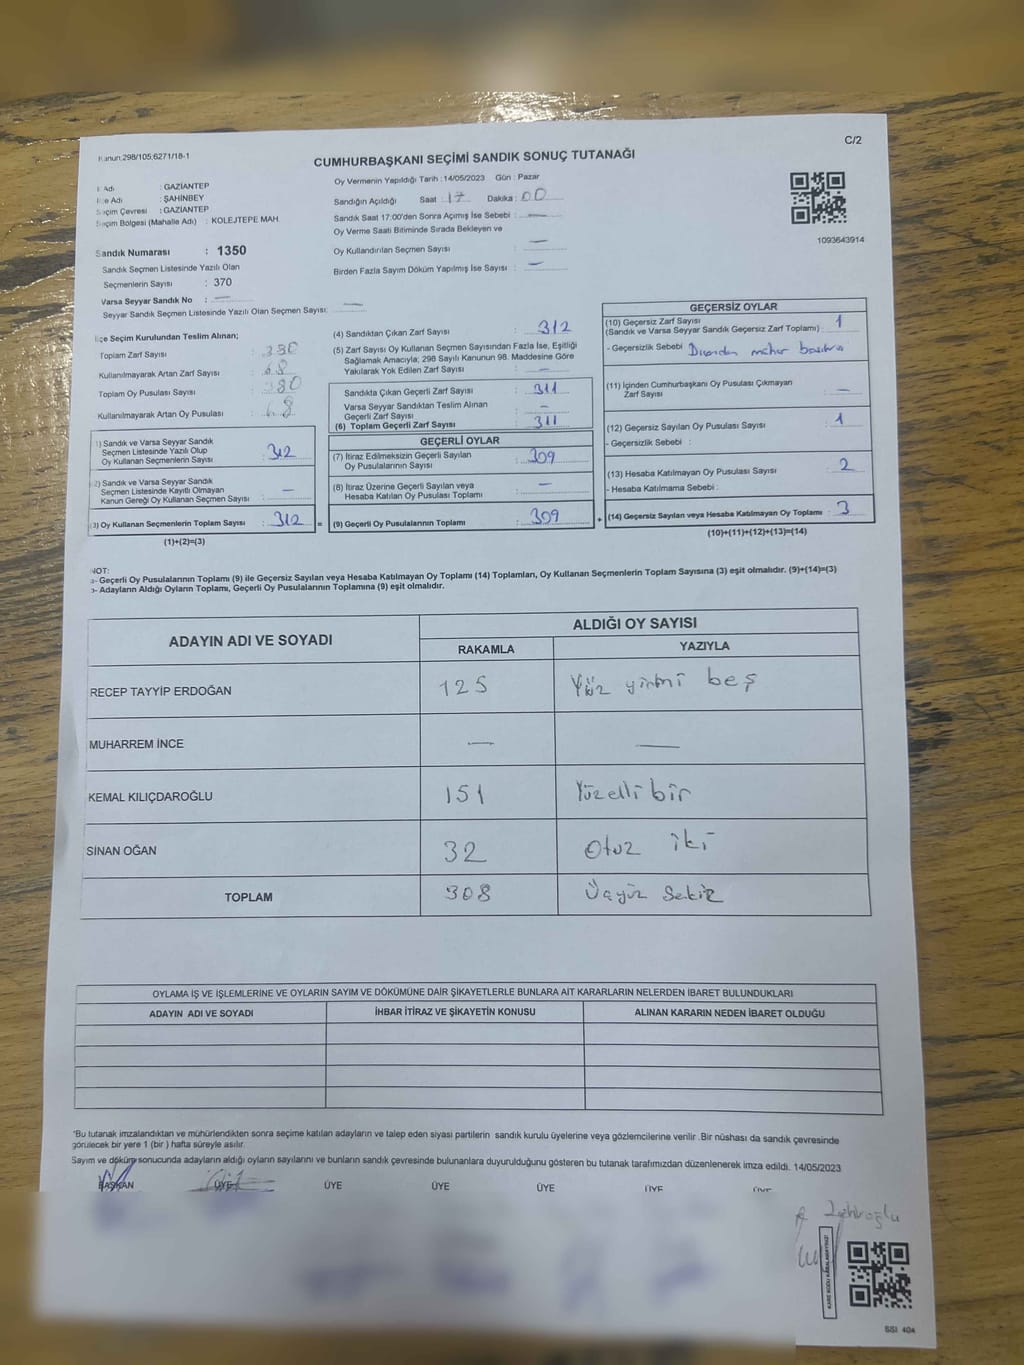 Kanun:298/105:6271/18-1
C/2
CUMHURBAŞKANI SEÇİMİ SANDIK SONUÇ TUTANAĞI
Oy Vermenin Yapıldığı Tarih : 14/05/2023 Gün : Pazar
İl Adı : GAZİANTEP
İlçe Adı : ŞAHİNBEY
Seçim Çevresi : GAZİANTEP
Seçim Bölgesi (Mahalle Adı) : KOLEJTEPE MAH.
Sandığın Açıldığı Saat : 17 Dakika : 00
Sandık Saat 17:00'den Sonra Açımış İse Sebebi : —
Oy Verme Saati Bitiminde Sırada Bekleyen ve
Oy Kullandırılan Seçmen Sayısı : —
Birden Fazla Sayım Döküm Yapılmış İse Sayısı : —
1093643914
Sandık Numarası : 1350
Sandık Seçmen Listesinde Yazılı Olan
Seçmenlerin Sayısı : 370
Varsa Seyyar Sandık No : —
Seyyar Sandık Seçmen Listesinde Yazılı Olan Seçmen Sayısı: —
İlçe Seçim Kurulundan Teslim Alınan;
Toplam Zarf Sayısı : 380
Kullanılmayarak Artan Zarf Sayısı : 68
Toplam Oy Pusulası Sayısı : 380
Kullanılmayarak Artan Oy Pusulası : 68
1) Sandık ve Varsa Seyyar Sandık
Seçmen Listesinde Yazılı Olup
Oy Kullanan Seçmenlerin Sayısı : 312
2) Sandık ve Varsa Seyyar Sandık
Seçmen Listesinde Kayıtlı Olmayan
Kanun Gereği Oy Kullanan Seçmen Sayısı : —
(3) Oy Kullanan Seçmenlerin Toplam Sayısı : 312 =
(1)+(2)=(3)
(4) Sandıktan Çıkan Zarf Sayısı : 312
(5) Zarf Sayısı Oy Kullanan Seçmen Sayısından Fazla İse, Eşitliği
Sağlamak Amacıyla; 298 Sayılı Kanunun 98. Maddesine Göre
Yakılarak Yok Edilen Zarf Sayısı : —
Sandıkta Çıkan Geçerli Zarf Sayısı : 311
Varsa Seyyar Sandıktan Teslim Alınan
Geçerli Zarf Sayısı : —
(6) Toplam Geçerli Zarf Sayısı : 311
GEÇERLİ OYLAR
(7) İtiraz Edilmeksizin Geçerli Sayılan
Oy Pusulalarının Sayısı : 309
(8) İtiraz Üzerine Geçerli Sayılan veya
Hesaba Katılan Oy Pusulası Toplamı : —
(9) Geçerli Oy Pusulalarının Toplamı : 309 +
GEÇERSİZ OYLAR
(10) Geçersiz Zarf Sayısı
(Sandık ve Varsa Seyyar Sandık Geçersiz Zarf Toplamı) : 1
- Geçersizlik Sebebi : mühür
(11) İçinden Cumhurbaşkanı Oy Pusulası Çıkmayan
Zarf Sayısı : —
(12) Geçersiz Sayılan Oy Pusulası Sayısı : 1
- Geçersizlik Sebebi :
(13) Hesaba Katılmayan Oy Pusulası Sayısı : 2
- Hesaba Katılmama Sebebi :
(14) Geçersiz Sayılan veya Hesaba Katılmayan Oy Toplamı : 3
(10)+(11)+(12)+(13)=(14)
NOT:
a- Geçerli Oy Pusulalarının Toplamı (9) ile Geçersiz Sayılan veya Hesaba Katılmayan Oy Toplamı (14) Toplamları, Oy Kullanan Seçmenlerin Toplam Sayısına (3) eşit olmalıdır. (9)+(14)=(3)
b- Adayların Aldığı Oyların Toplamı, Geçerli Oy Pusulalarının Toplamına (9) eşit olmalıdır.
ADAYIN ADI VE SOYADI ALDIĞI OY SAYISI
RAKAMLA YAZIYLA
RECEP TAYYİP ERDOĞAN 125 Yüz yirmi beş
MUHARREM İNCE — —
KEMAL KILIÇDAROĞLU 151 Yüzelli bir
SİNAN OĞAN 32 Otuz iki
TOPLAM 308 Üçyüz Sekiz
OYLAMA İŞ VE İŞLEMLERİNE VE OYLARIN SAYIM VE DÖKÜMÜNE DAİR ŞİKAYETLERLE BUNLARA AİT KARARLARIN NELERDEN İBARET BULUNDUKLARI
ADAYIN ADI VE SOYADI İHBAR İTİRAZ VE ŞİKAYETİN KONUSU ALINAN KARARIN NEDEN İBARET OLDUĞU
*Bu tutanak imzalandıktan ve mühürlendikten sonra seçime katılan adayların ve talep eden siyasi partilerin sandık kurulu üyelerine veya gözlemcilerine verilir. Bir nüshası da sandık çevresinde
görülecek bir yere 1 (bir) hafta süreyle asılır.
Sayım ve döküm sonucunda adayların aldığı oyların sayılarını ve bunların sandık çevresinde bulunanlara duyurulduğunu gösteren bu tutanak tarafımızdan düzenlenerek imza edildi. 14/05/2023
BAŞKAN ÜYE ÜYE ÜYE ÜYE ÜYE ÜYE